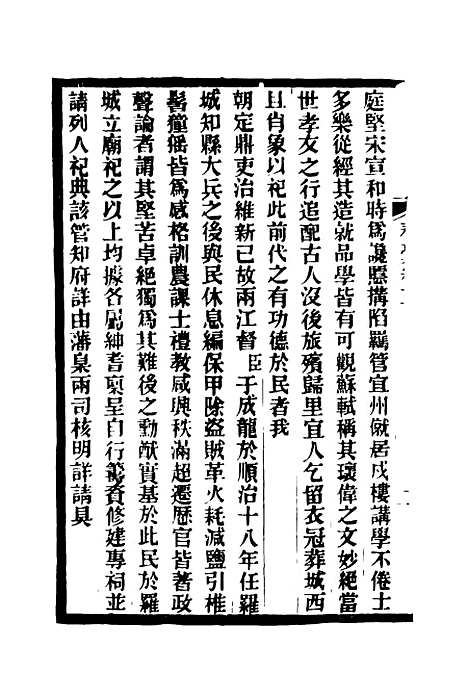 庭堅宋宣和時爲讒慝搆陷羈管宜州僦居戍樓講學不倦士
多樂從經其造就品學皆有可觀蘇軾稱其瓌偉之文妙絕當
世孝友之行追配古人沒後旅殯歸里宜人乞留衣冠葬城西
且肖象以祀此前代之有功德於民者我
朝定鼎吏治維新已故兩江督臣于成龍於順治十八年任羅
城知縣大兵之後與民休息編保甲除盜賊革火耗減鹽引椎
髻獞猺皆爲感格訓農課士禮教咸興秩滿超遷歷官皆著政
聲論者謂其堅苦卓絕獨爲其難後之勳猷實基於此民於羅
城立廟祀之以上均據各屬紳耆稟呈自行籌資修建專祠並
請列入祀典該管知府詳由藩臬兩司核明詳請具